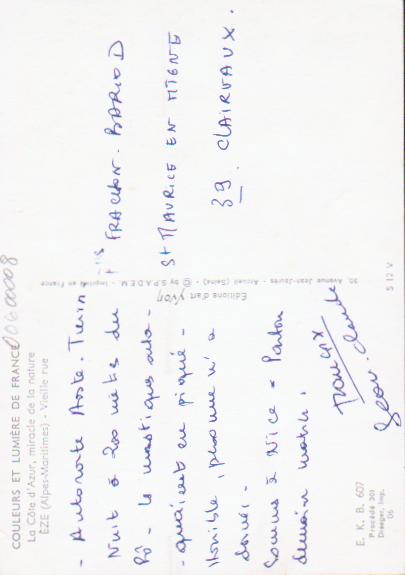 COULEURS ET LUMIÈRE DE FRANCE
La Côte d'Azur, miracle de la nature
ÈZE (Alpes-Maritimes) - Vieille rue
00600008
- Autoroute Aoste. Turin
Nuit à 200 mètres du
Pô - les moustiques atta-
- quaient en piqué -
Horrible, personne n'a
dormi -
Sommes à Nice - Partons
demain matin.
François
Jean-Claude
E. K. B. 607
Procédé 301
Draeger, Imp.
06
Editions d'art YVON
30, Avenue Jean-Jaurès - Arcueil (Seine) - © by S.P.A.D.E.M. - Imprimé en France
S 12 V
FRACHON. BARIOD
St MAURICE EN
39. CLAIRVAUX.